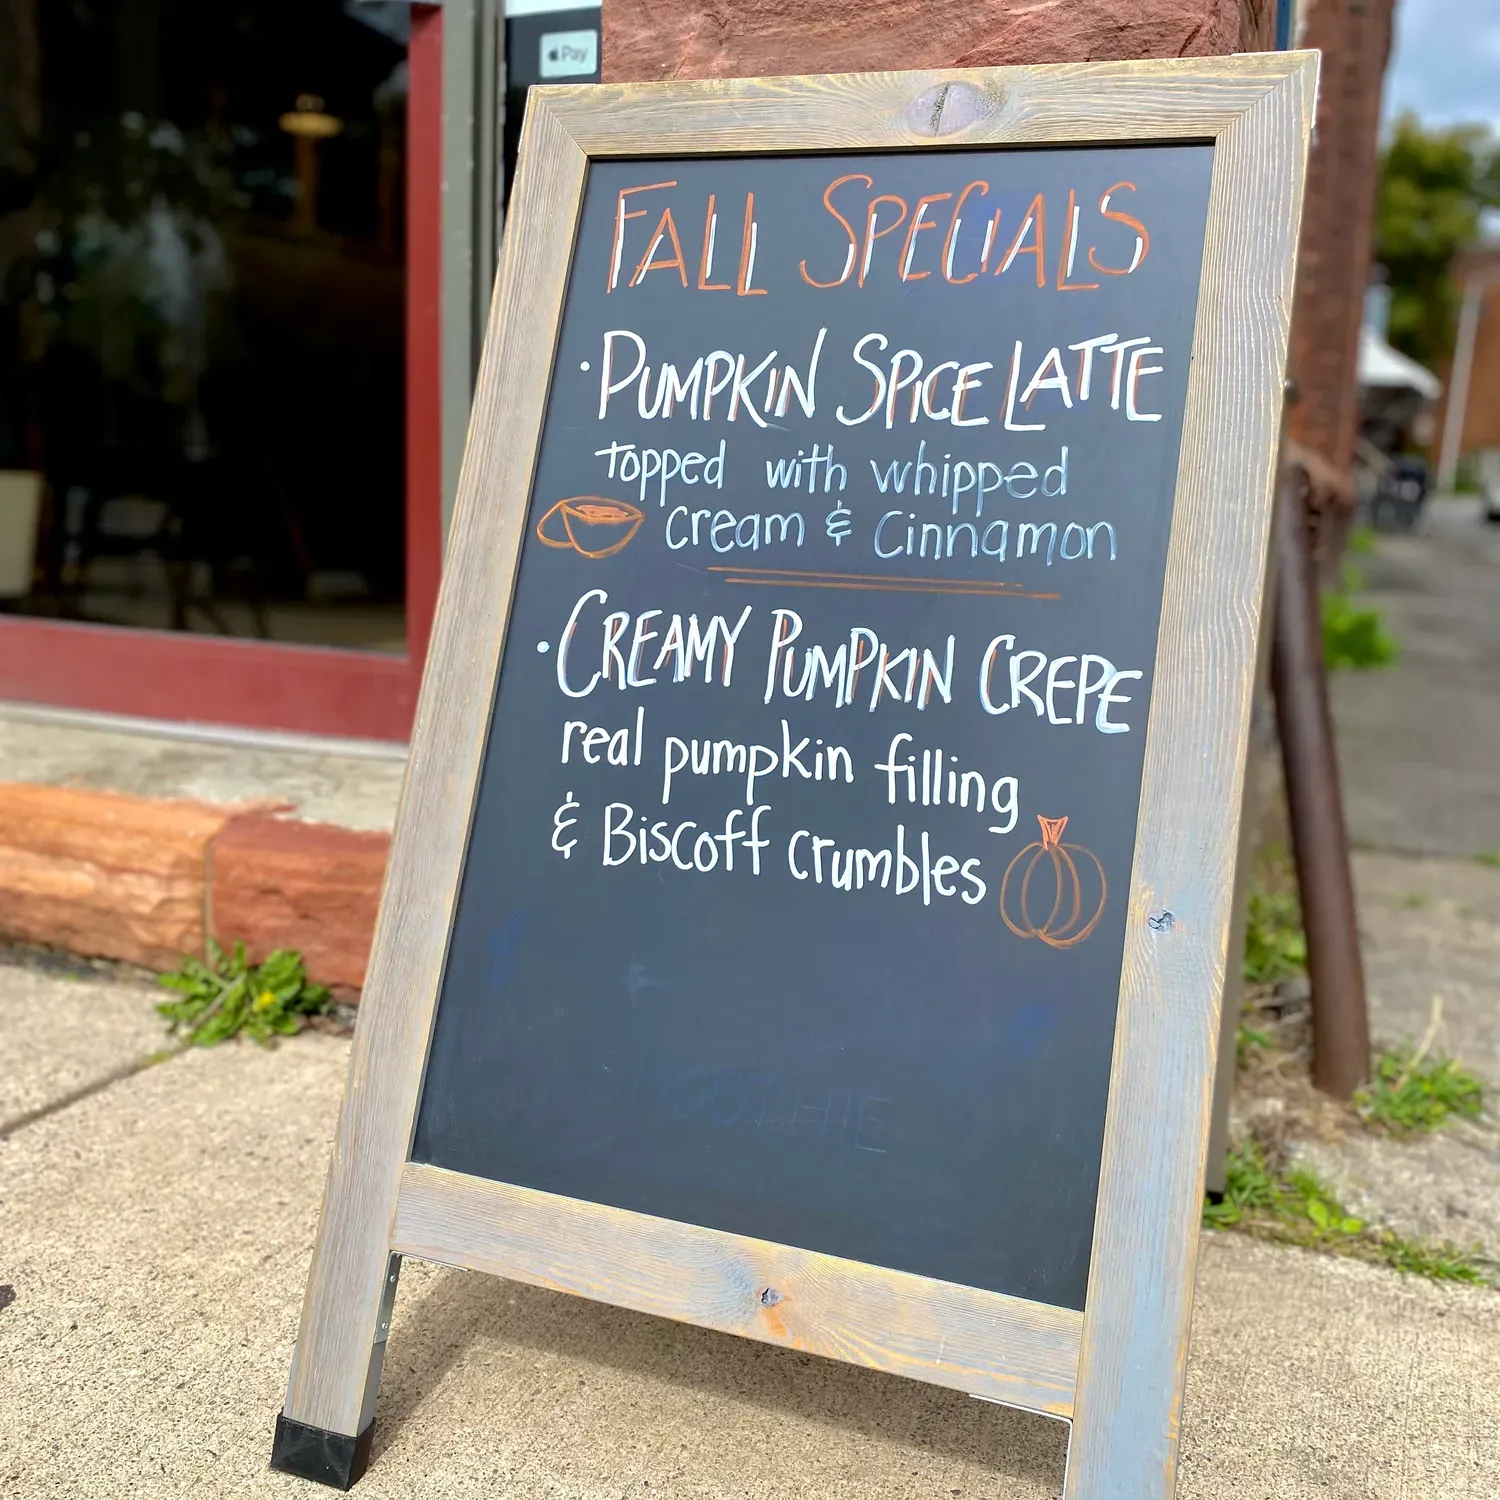 Pay
FALL SPECIALS
• PUMPKIN SPICE LATTE
topped with whipped
cream & Cinnamon
• CREAMY PUMPKIN CREPE
real pumpkin filling
& Biscoff crumbles
SMOOTHIE